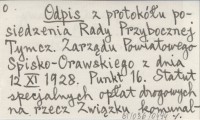 O
Odpis z protokółu po-
siedzenia Rady Przybocznej
Tymcz. Zarządu Powiatowego
Spisko-Orawskiego z dnia
12 XI 1928. Punkt 16. Statut
specjalnych opłat drogowych
na rzecz Związku komunal-